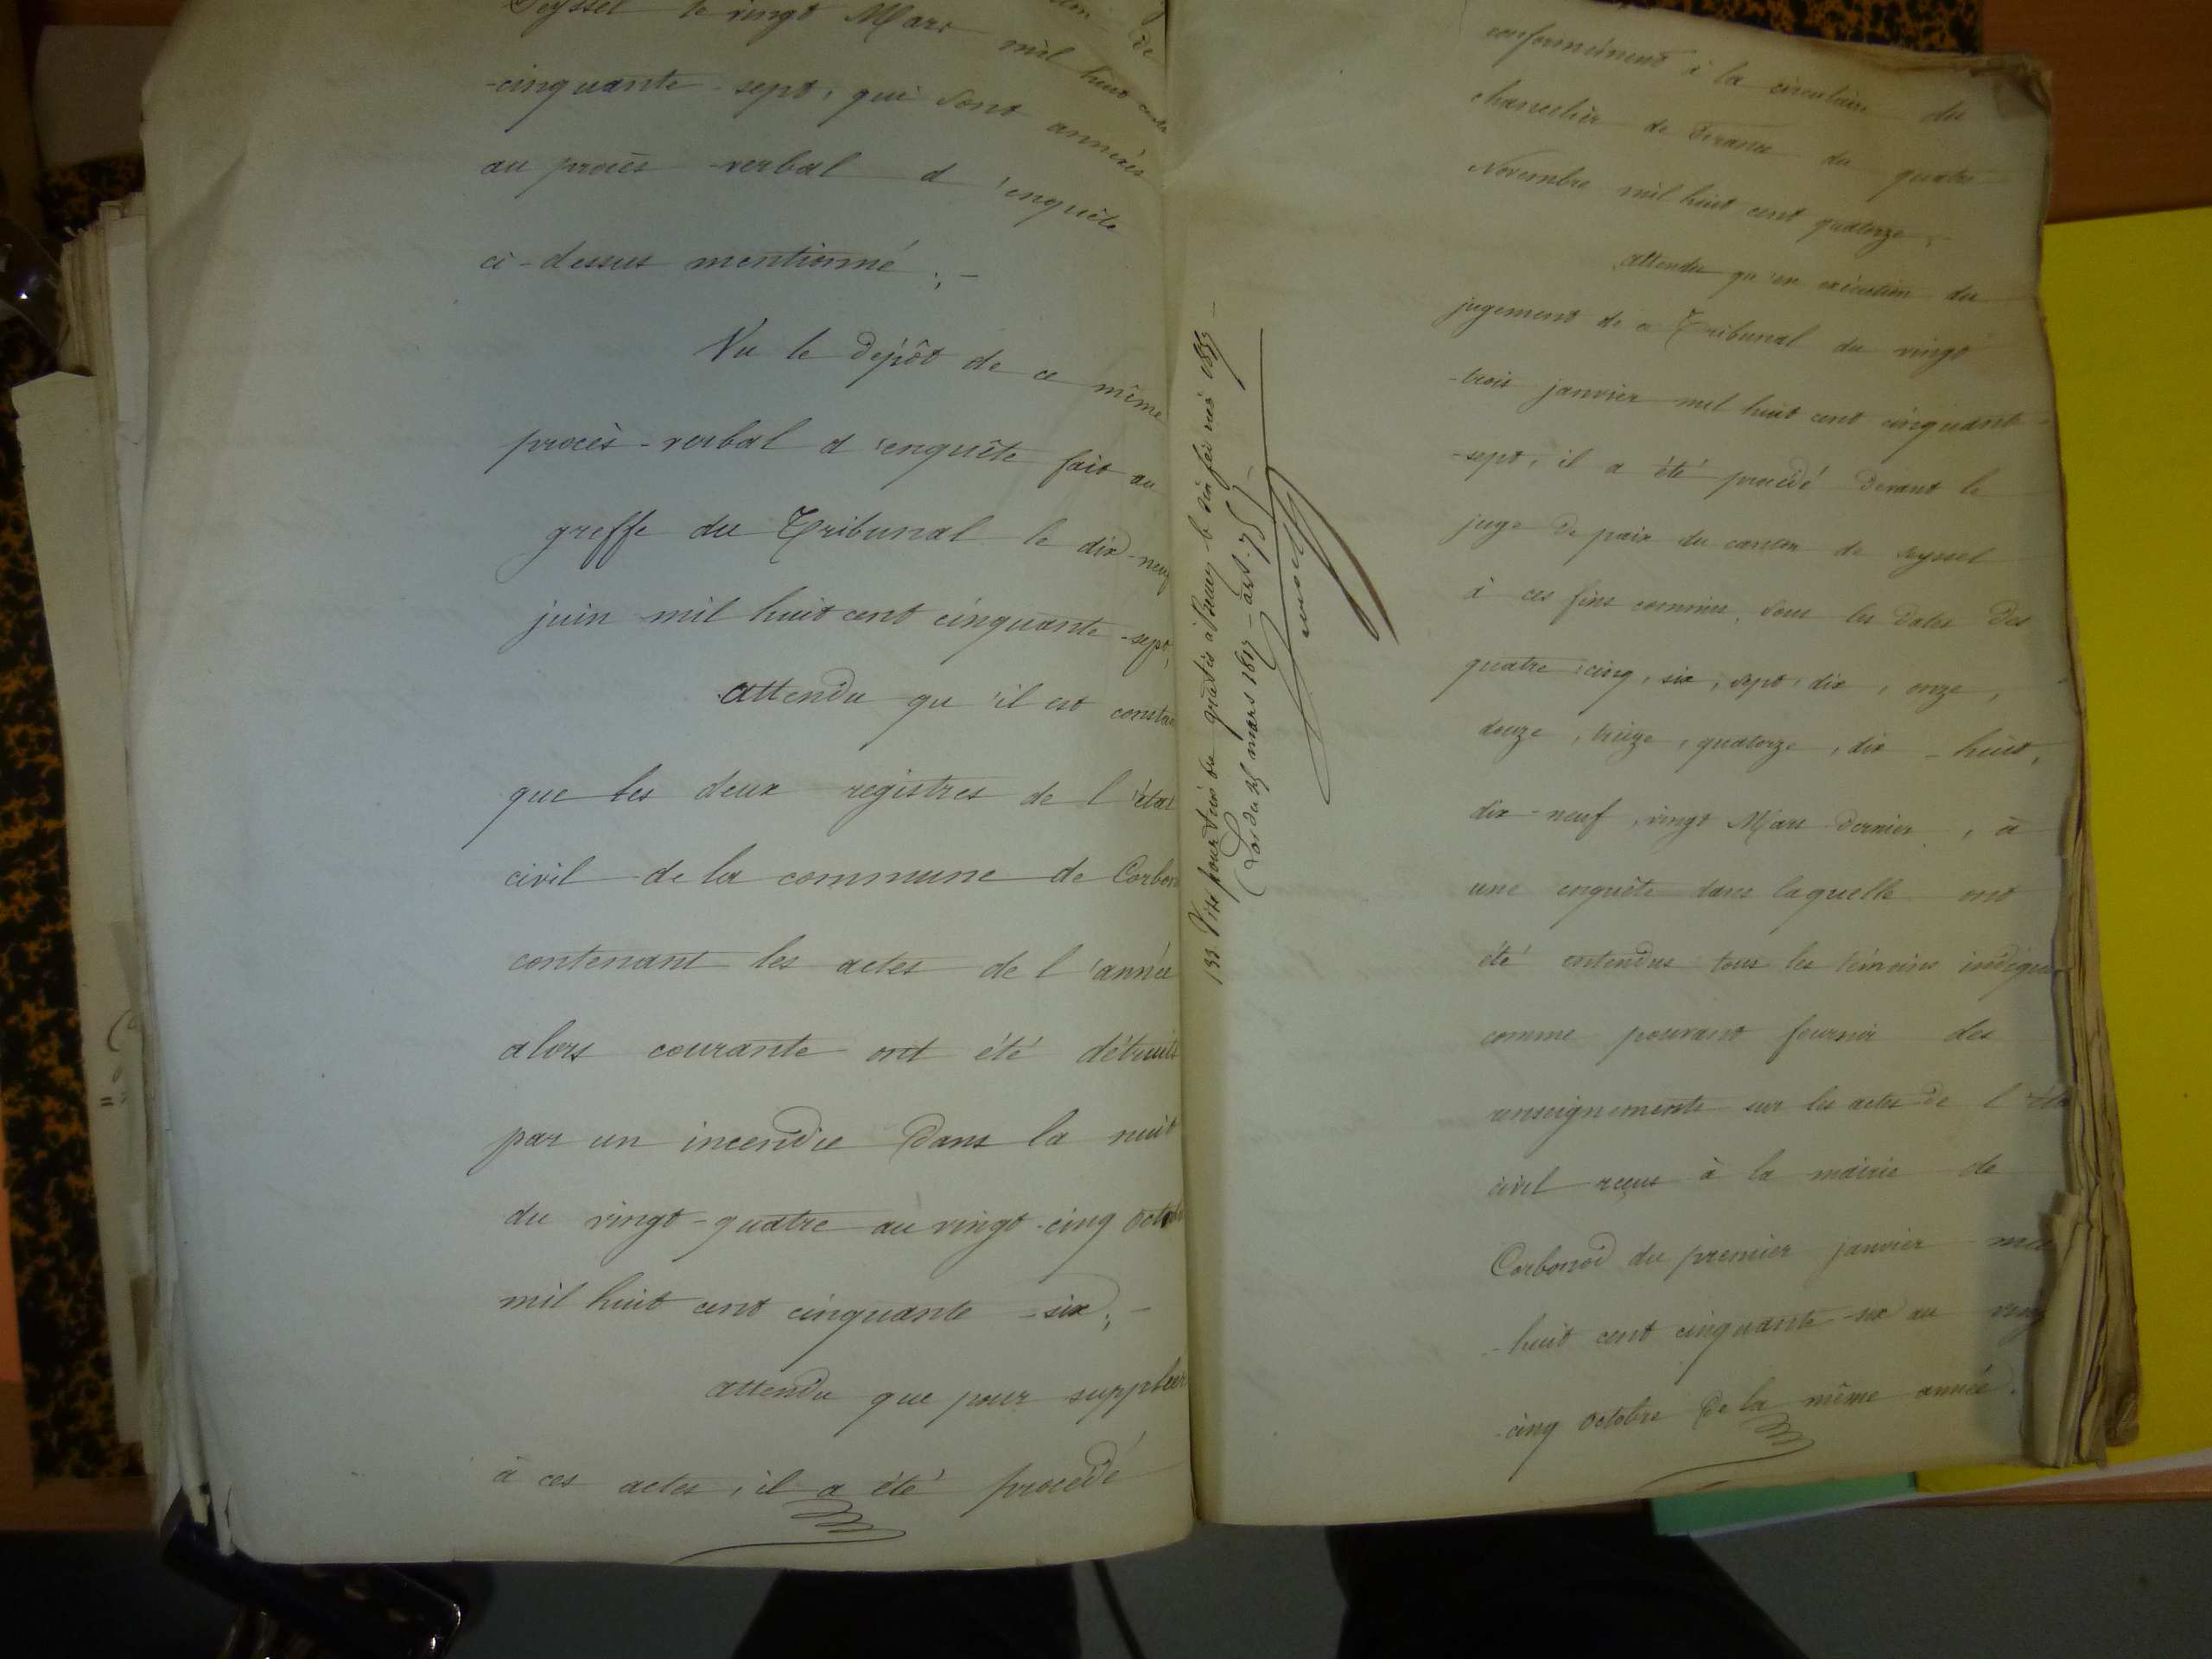 de
Seyssel le vingt Mars mil huit cent
-cinquante-sept, qui sont annexés
au procès-verbal d'enquête
ci-dessus mentionné ; -
Vu le dépôt de ce même
procès-verbal d'enquête fait au
greffe du Tribunal le dix-neuf
juin mil huit cent cinquante-sept,
attendu qu'il est constan
que les deux registres de l'état
civil de la commune de Corbon
contenant les actes de l'année
alors courante ont été détruits
par un incendie dans la nuit
du vingt-quatre au vingt-cinq octobre
mil huit cent cinquante-six ; -
attendu que pour suppléer
à ces actes, il a été procédé
133 Visé pour timbre gratis à Belley le six 1857 -
(Loi du 25 mars 1817 - art. 75) -
conformément à la circulaire du
chancelier de France du quatre
Novembre mil huit cent quatorze ; -
attendu qu'en exécution du
jugement de ce Tribunal du vingt
-trois janvier mil huit cent cinquante-
-sept, il a été procédé devant le
juge de paix du canton de Seyssel
à ces fins commis, sous les dates des
quatre, cinq, six, sept, dix, onze,
douze, treize, quatorze, dix-huit,
dix-neuf, vingt Mars dernier, à
une enquête dans laquelle ont
été entendus tous les témoins indiqu
comme pouvant fournir des
renseignements sur les actes de l'éta
civil reçus à la mairie de
Corbonod du premier janvier mil
-huit cent cinquante-six au vingt
-cinq octobre de la même année.